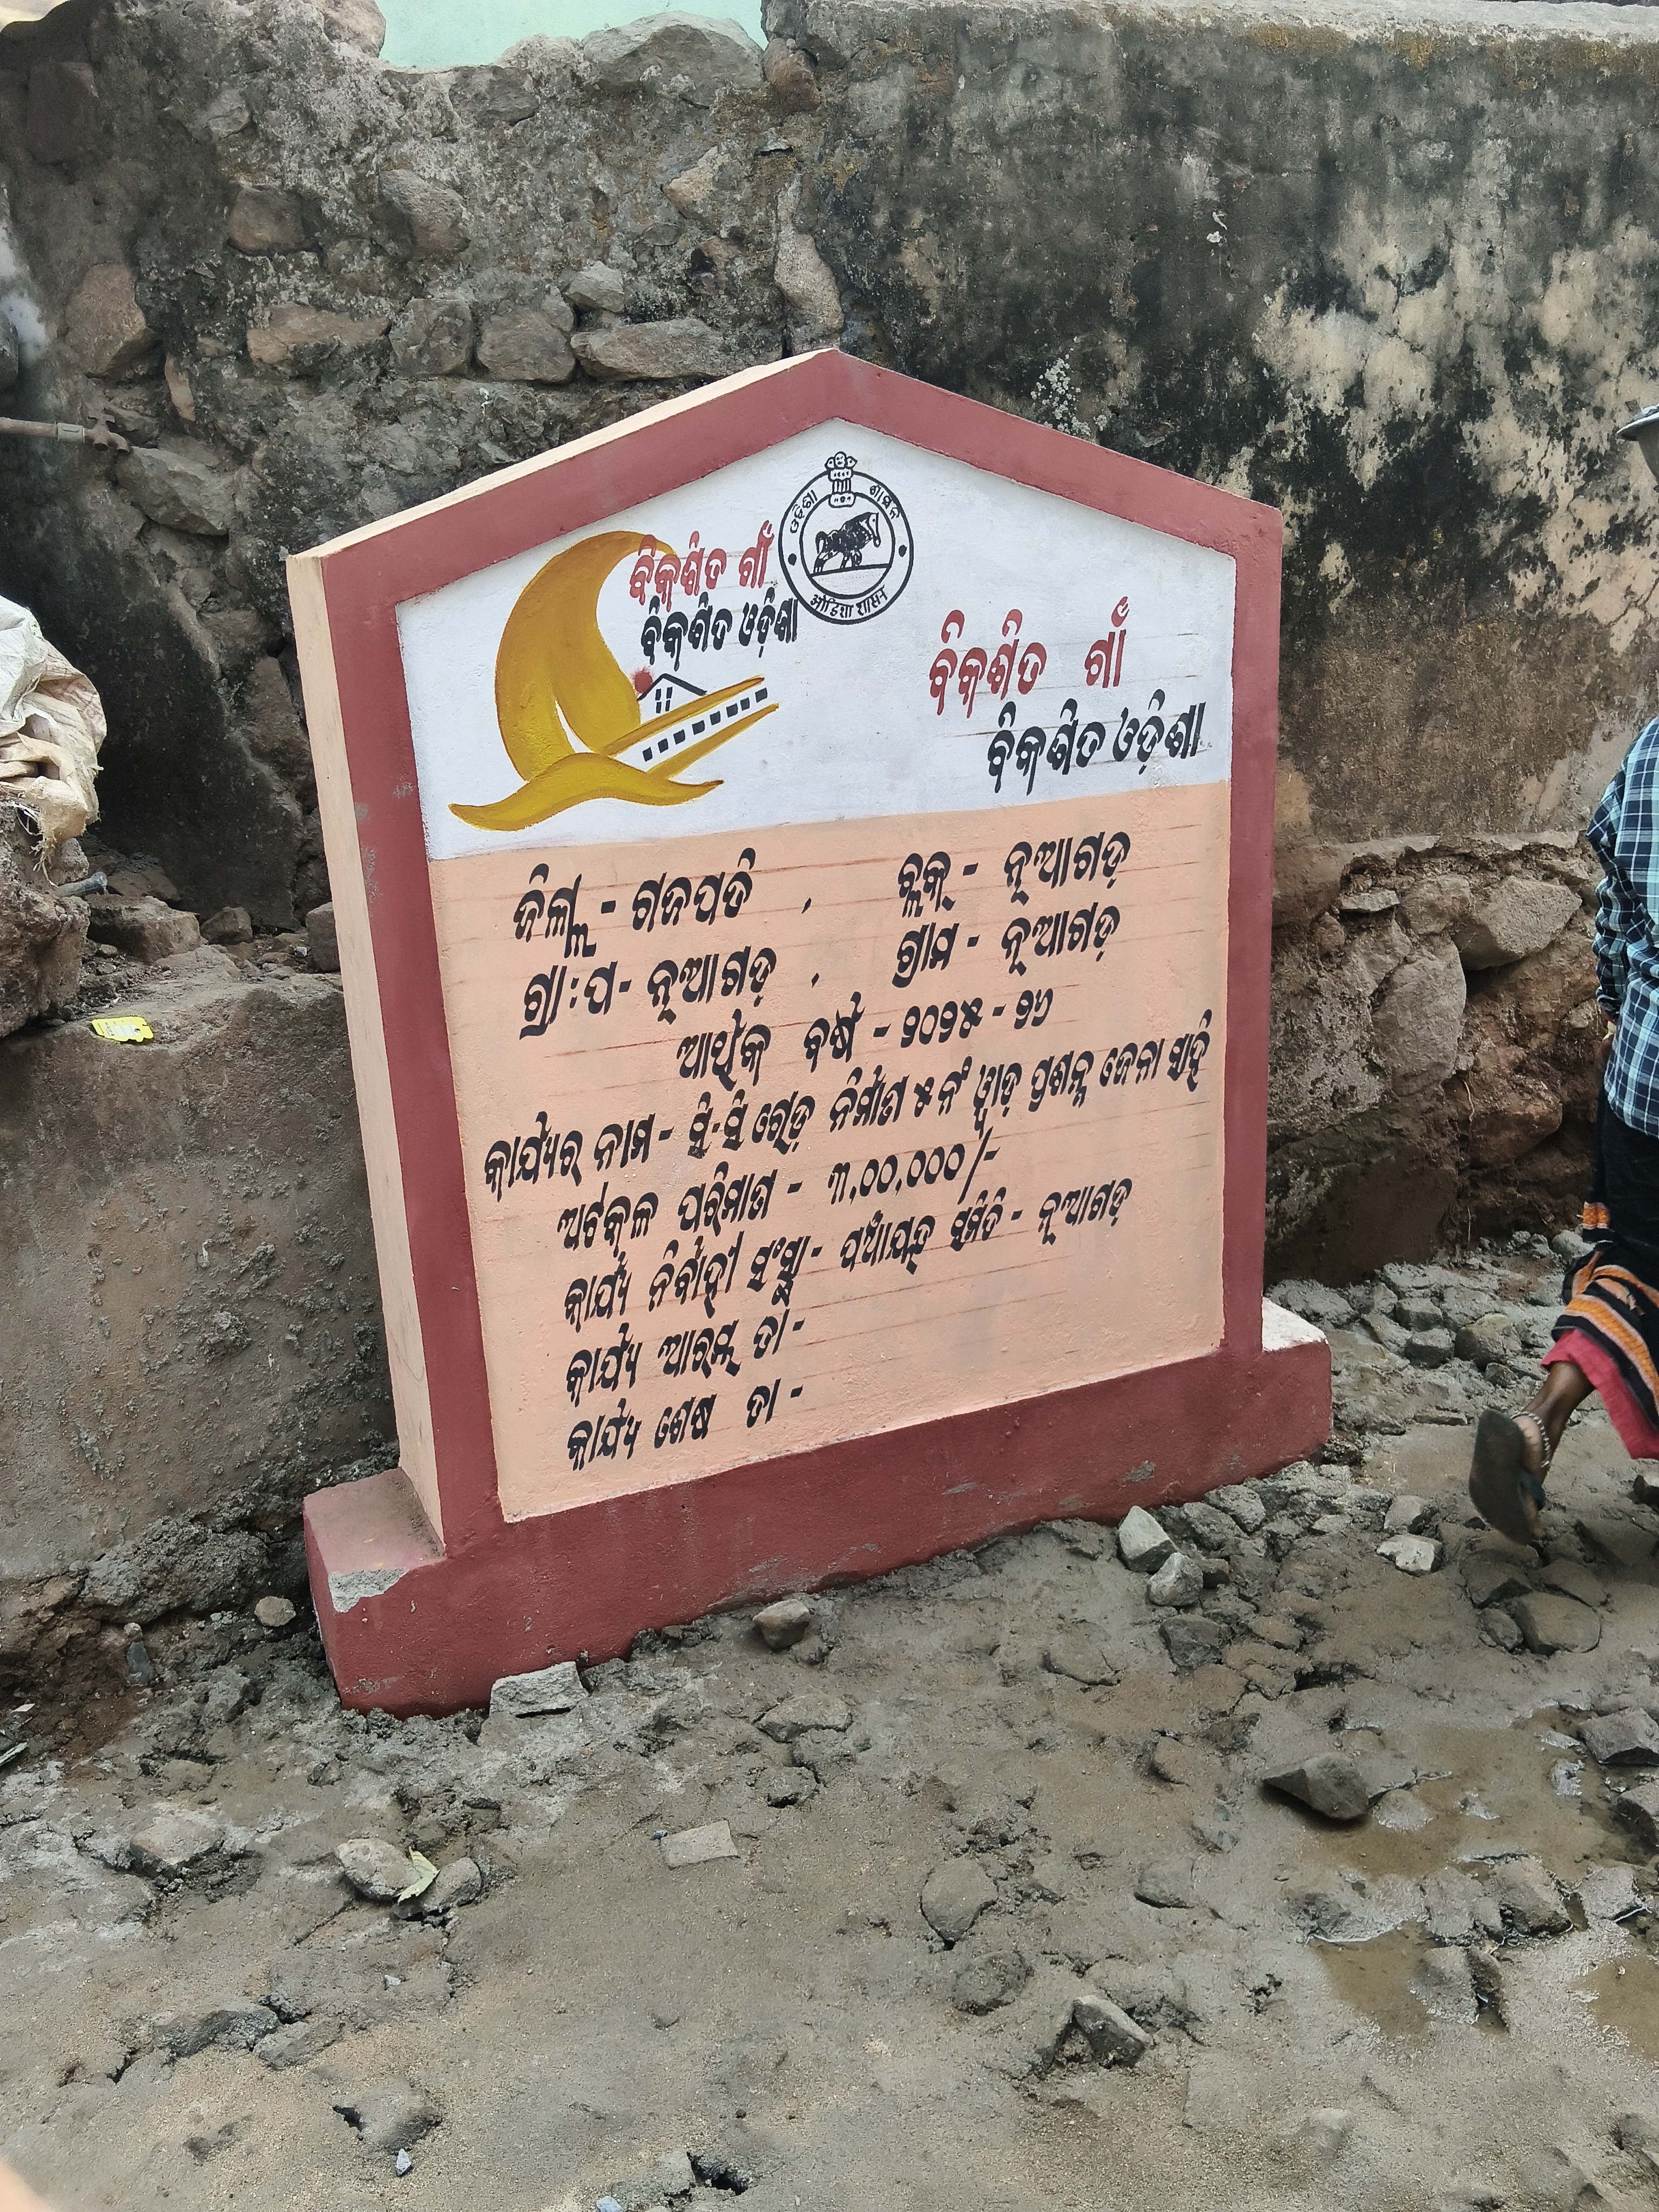 ଓଡ଼ିଶା ଶାସନ
ओडिशा शासन
ବିକଶିତ ଗାଁ
ବିକଶିତ ଓଡ଼ିଶା
ବିକଶିତ ଗାଁ
ବିକଶିତ ଓଡ଼ିଶା
ଜିଲ୍ଲା - ଗଜପତି , ବ୍ଲକ୍ - ନୂଆଗଡ଼
ଗ୍ରା:ପ - ନୂଆଗଡ଼ , ଗ୍ରାମ - ନୂଆଗଡ଼
ଆର୍ଥିକ ବର୍ଷ - ୨୦୨୫ - ୨୬
କାର୍ଯ୍ୟର ନାମ - ସି.ସି ରୋଡ଼ ନିର୍ମାଣ ୫ନଂ ୱାଡ଼ ପ୍ରଶନ୍ନ ଜେନା ସାହି
ଅଟକଳ ପରିମାଣ - ୩,୦୦,୦୦୦/-
କାର୍ଯ୍ୟ ନିର୍ବାହୀ ସଂସ୍ଥା - ପଞ୍ଚାୟତ ସମିତି - ନୂଆଗଡ଼
କାର୍ଯ୍ୟ ଆରମ୍ଭ ତା -
କାର୍ଯ୍ୟ ଶେଷ ତା -